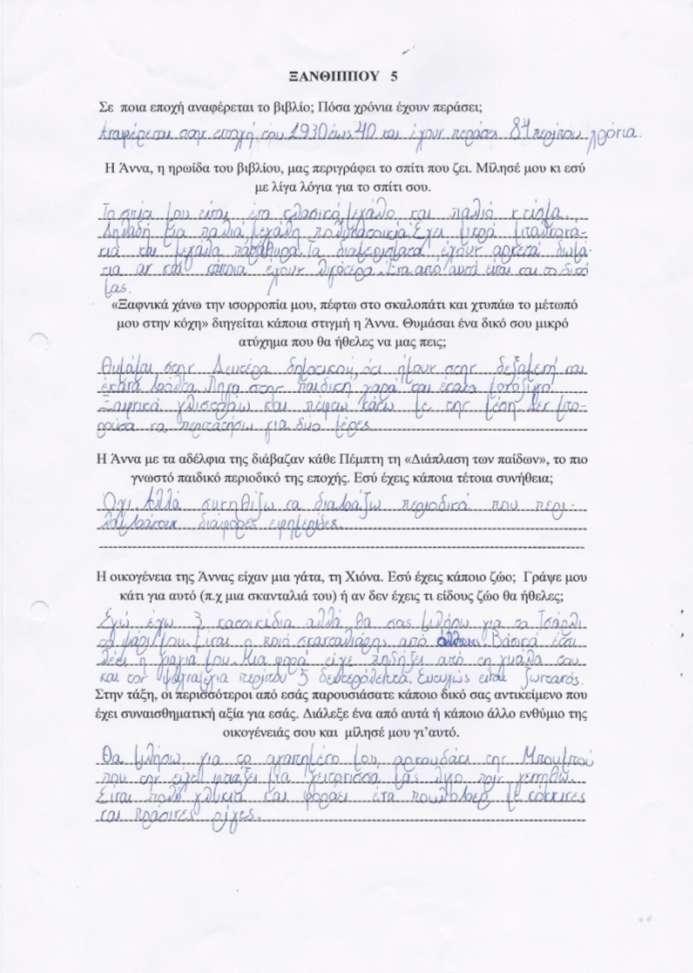 ΞΑΝΘΙΠΠΟΥ 5
Σε ποια εποχή αναφέρεται το βιβλίο; Πόσα χρόνια έχουν περάσει;
Αναφέρεται στην εποχή του 1930 έως 40 και έχουν περάσει 84 περίπου χρόνια.
Η Άννα, η ηρωίδα του βιβλίου, μας περιγράφει το σπίτι που ζει. Μίλησέ μου κι εσύ
με λίγα λόγια για το σπίτι σου.
Το σπίτι μου είναι ένα κλασικά μεγάλο και παλιό κτίσμα.
Δηλαδή μια παλιά μεγάλη πολυκατοικία. Έχει μικρά μπαλκονά-
κια και μεγάλα παράθυρα. Τα διαμερίσματα έχουν αρκετά δωμά-
τια αν και κάποια έχουν λιγότερα. Ένα από αυτά είναι και το δικό
μας.
«Ξαφνικά χάνω την ισορροπία μου, πέφτω στο σκαλοπάτι και χτυπάω το μέτωπό
μου στην κόχη» διηγείται κάποια στιγμή η Άννα. Θυμάσαι ένα δικό σου μικρό
ατύχημα που θα ήθελες να μας πεις;
Θυμάμαι στην Δευτέρα δημοτικού, ότι ήμουν στην δεξαμενή και
έκανα βόλτα. Πήγα στην παιδική χαρά και έκανα μονόζυγο.
Ξαφνικά γλιστράω και πέφτω κάτω με την μέση. Δεν μπο-
ρούσα να περπατήσω για δυο μέρες.
Η Άννα με τα αδέλφια της διάβαζαν κάθε Πέμπτη τη «Διάπλαση των παίδων», το πιο
γνωστό παιδικό περιοδικό της εποχής. Εσύ έχεις κάποια τέτοια συνήθεια;
Όχι. Αλλά συνηθίζω να διαβάζω περιοδικά που περι-
λαμβάνουν διάφορες εφημερίδες.
Η οικογένεια της Άννας είχαν μια γάτα, τη Χιόνα. Εσύ έχεις κάποιο ζώο; Γράψε μου
κάτι για αυτό (π.χ μια σκανταλιά του) ή αν δεν έχεις τι είδους ζώο θα ήθελες;
Εγώ έχω 3 κατοικίδια αλλά θα σας μιλήσω για το Τσάρλι
το ψάρι μου. Είναι ο σκανταλιάρης από Βασικά έτσι
λέει η γιαγιά μου. Μια φορά είχε πηδήξει από τη γυάλα του
και τον περίπου 5 δευτερόλεπτα. Ευτυχώς είναι ζωντανός.
Στην τάξη, οι περισσότεροι από εσάς παρουσιάσατε κάποιο δικό σας αντικείμενο που
έχει συναισθηματική αξία για εσάς. Διάλεξε ένα από αυτά ή κάποιο άλλο ενθύμιο της
οικογένειάς σου και μίλησέ μου γι'αυτό.
Θα μιλήσω για το αγαπημένο μου, αρκουδάκι της Μπουμπού
που την είχε φτιάξει μια γειτόνισσα μας λίγο πριν γεννηθώ.
Είναι πολύ γλυκιά και φοράει ένα πουλόβερ με κόκκινες
και πράσινες ρίγες.